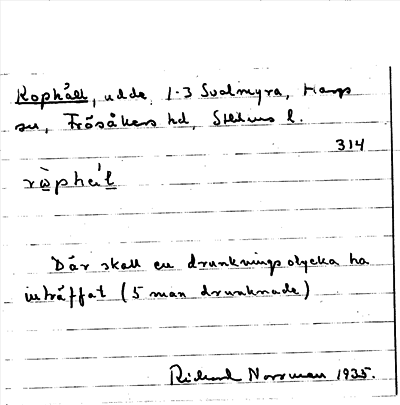 Rophåll, udde, 1·3 Svalmyra, Hargs
sn, Frösåkers hd, Sthlms l.
314
ròphàl
Där skall en drunkningsolycka ha
inträffat (5 man drunknade)
Richard Norrman 1935.